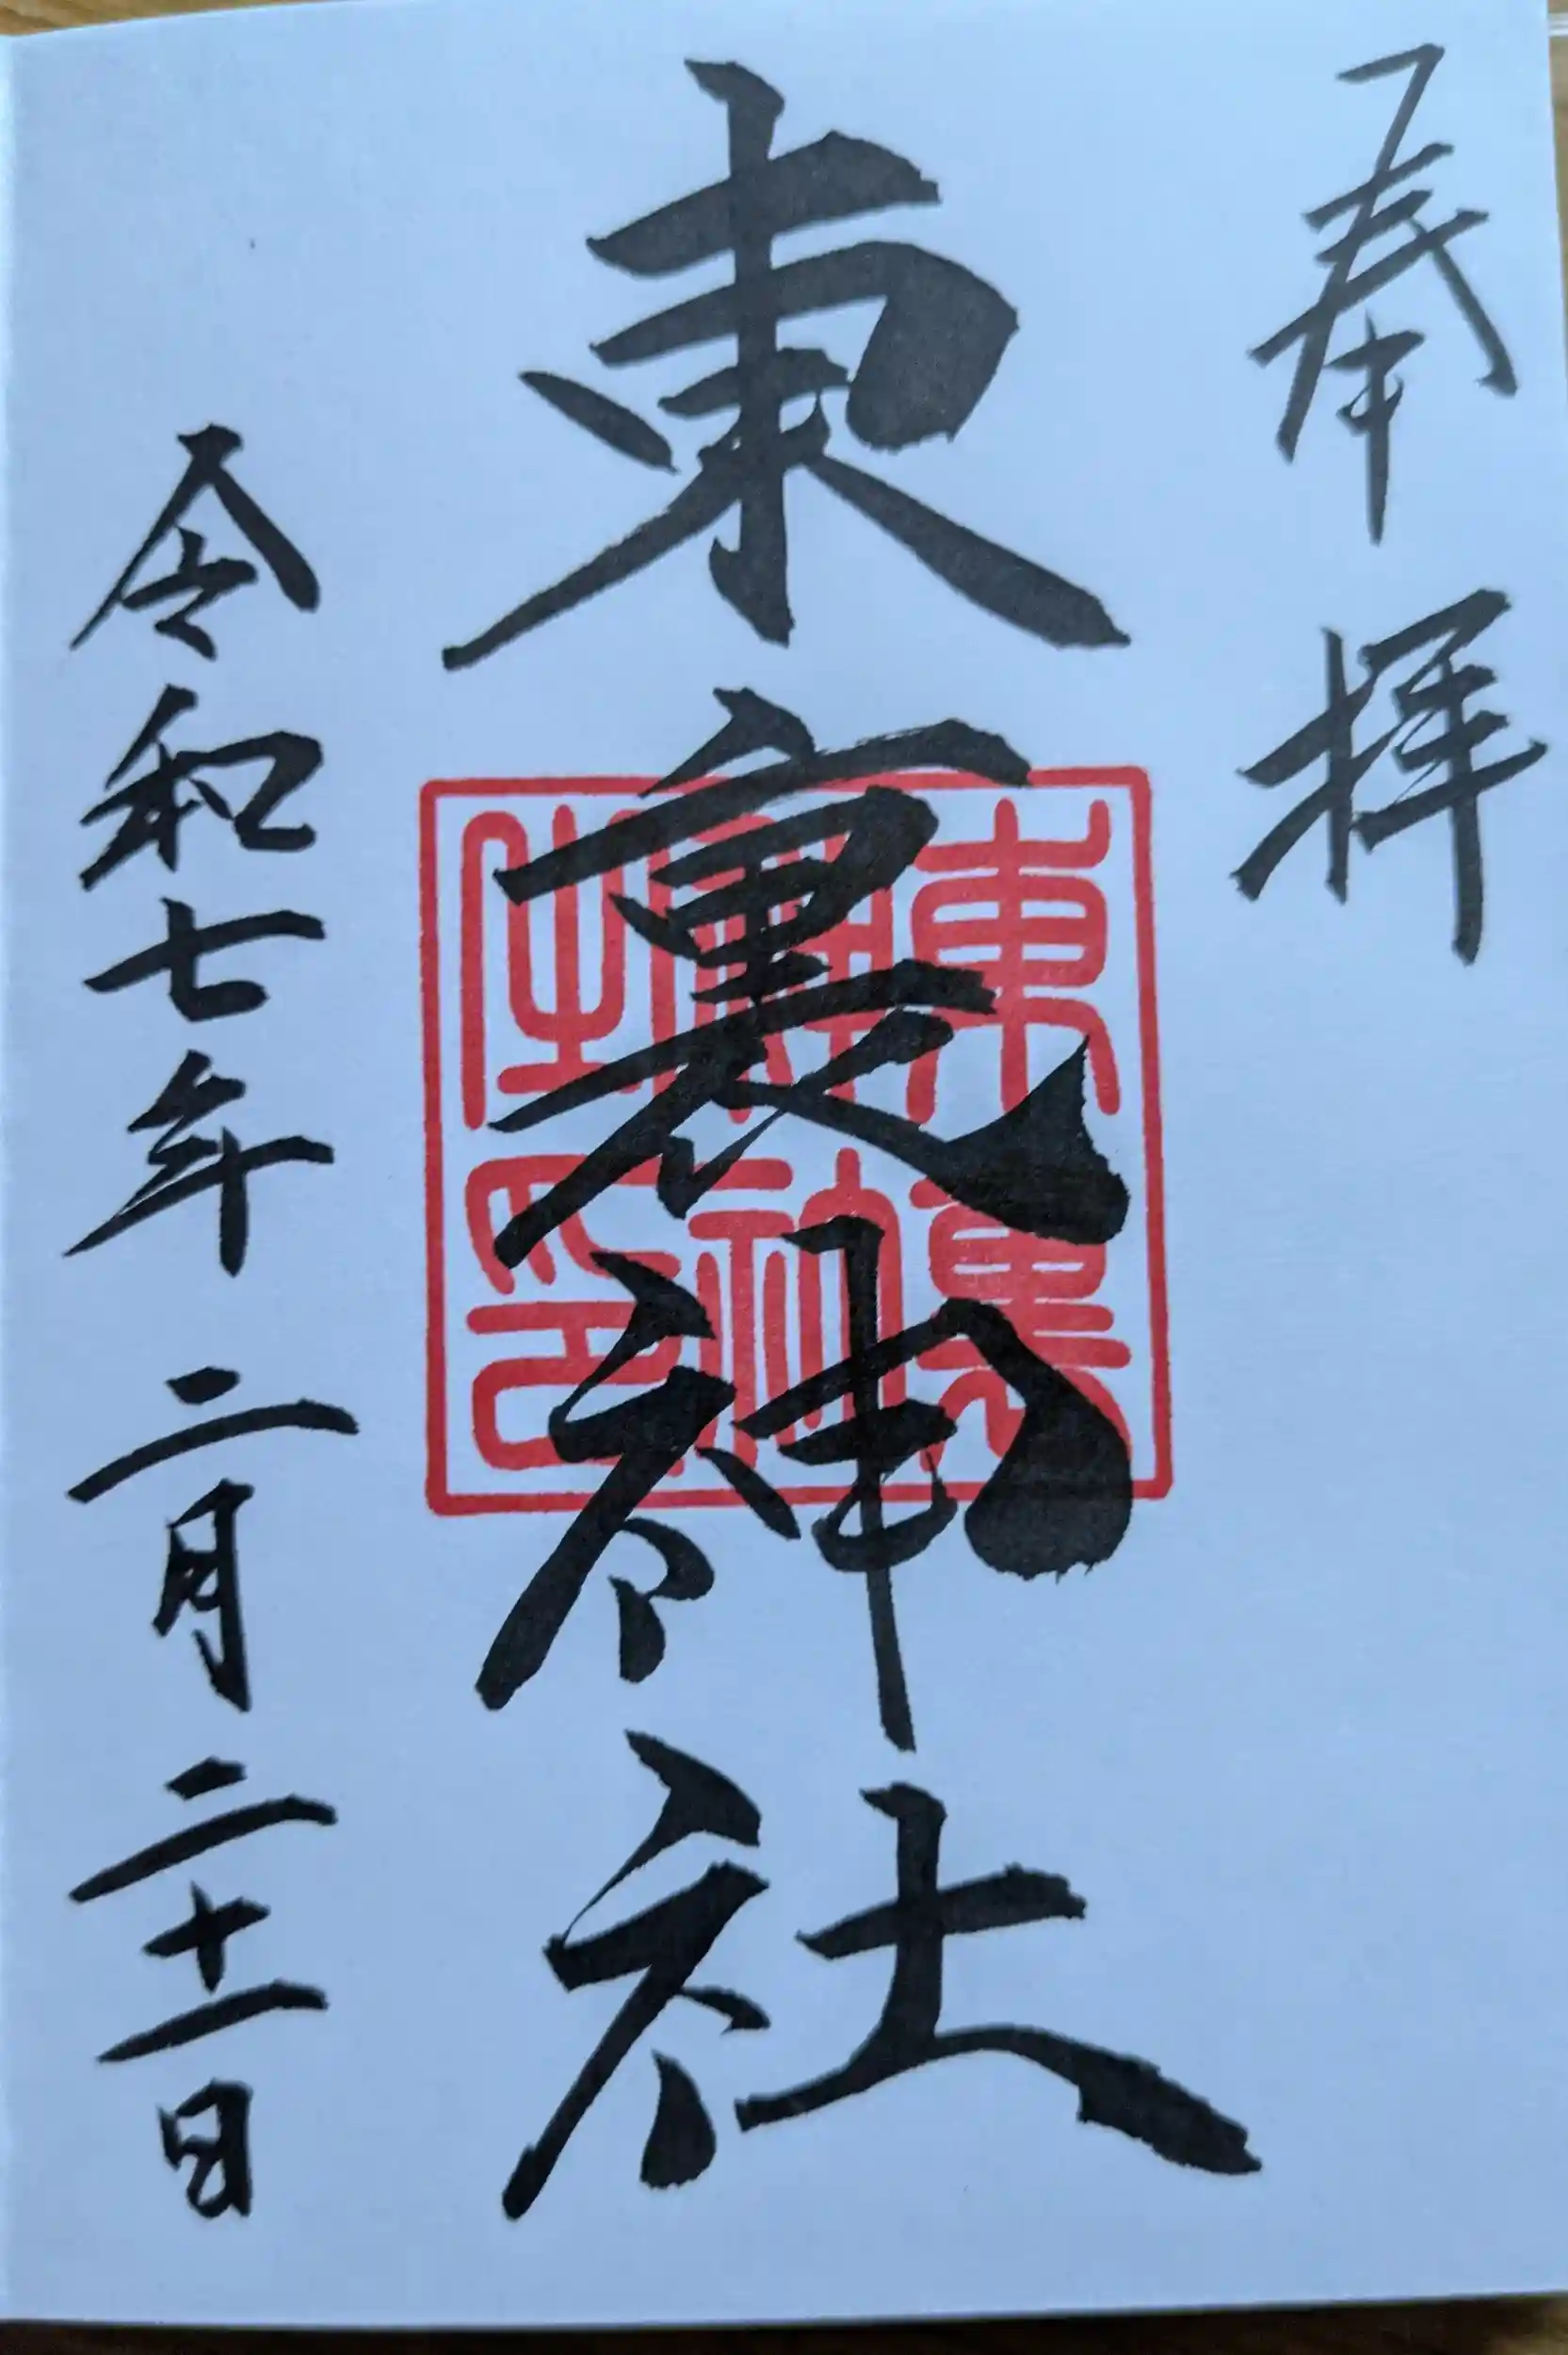 奉拝
東裏神社
東裏神社印
令和七年二月二十一日